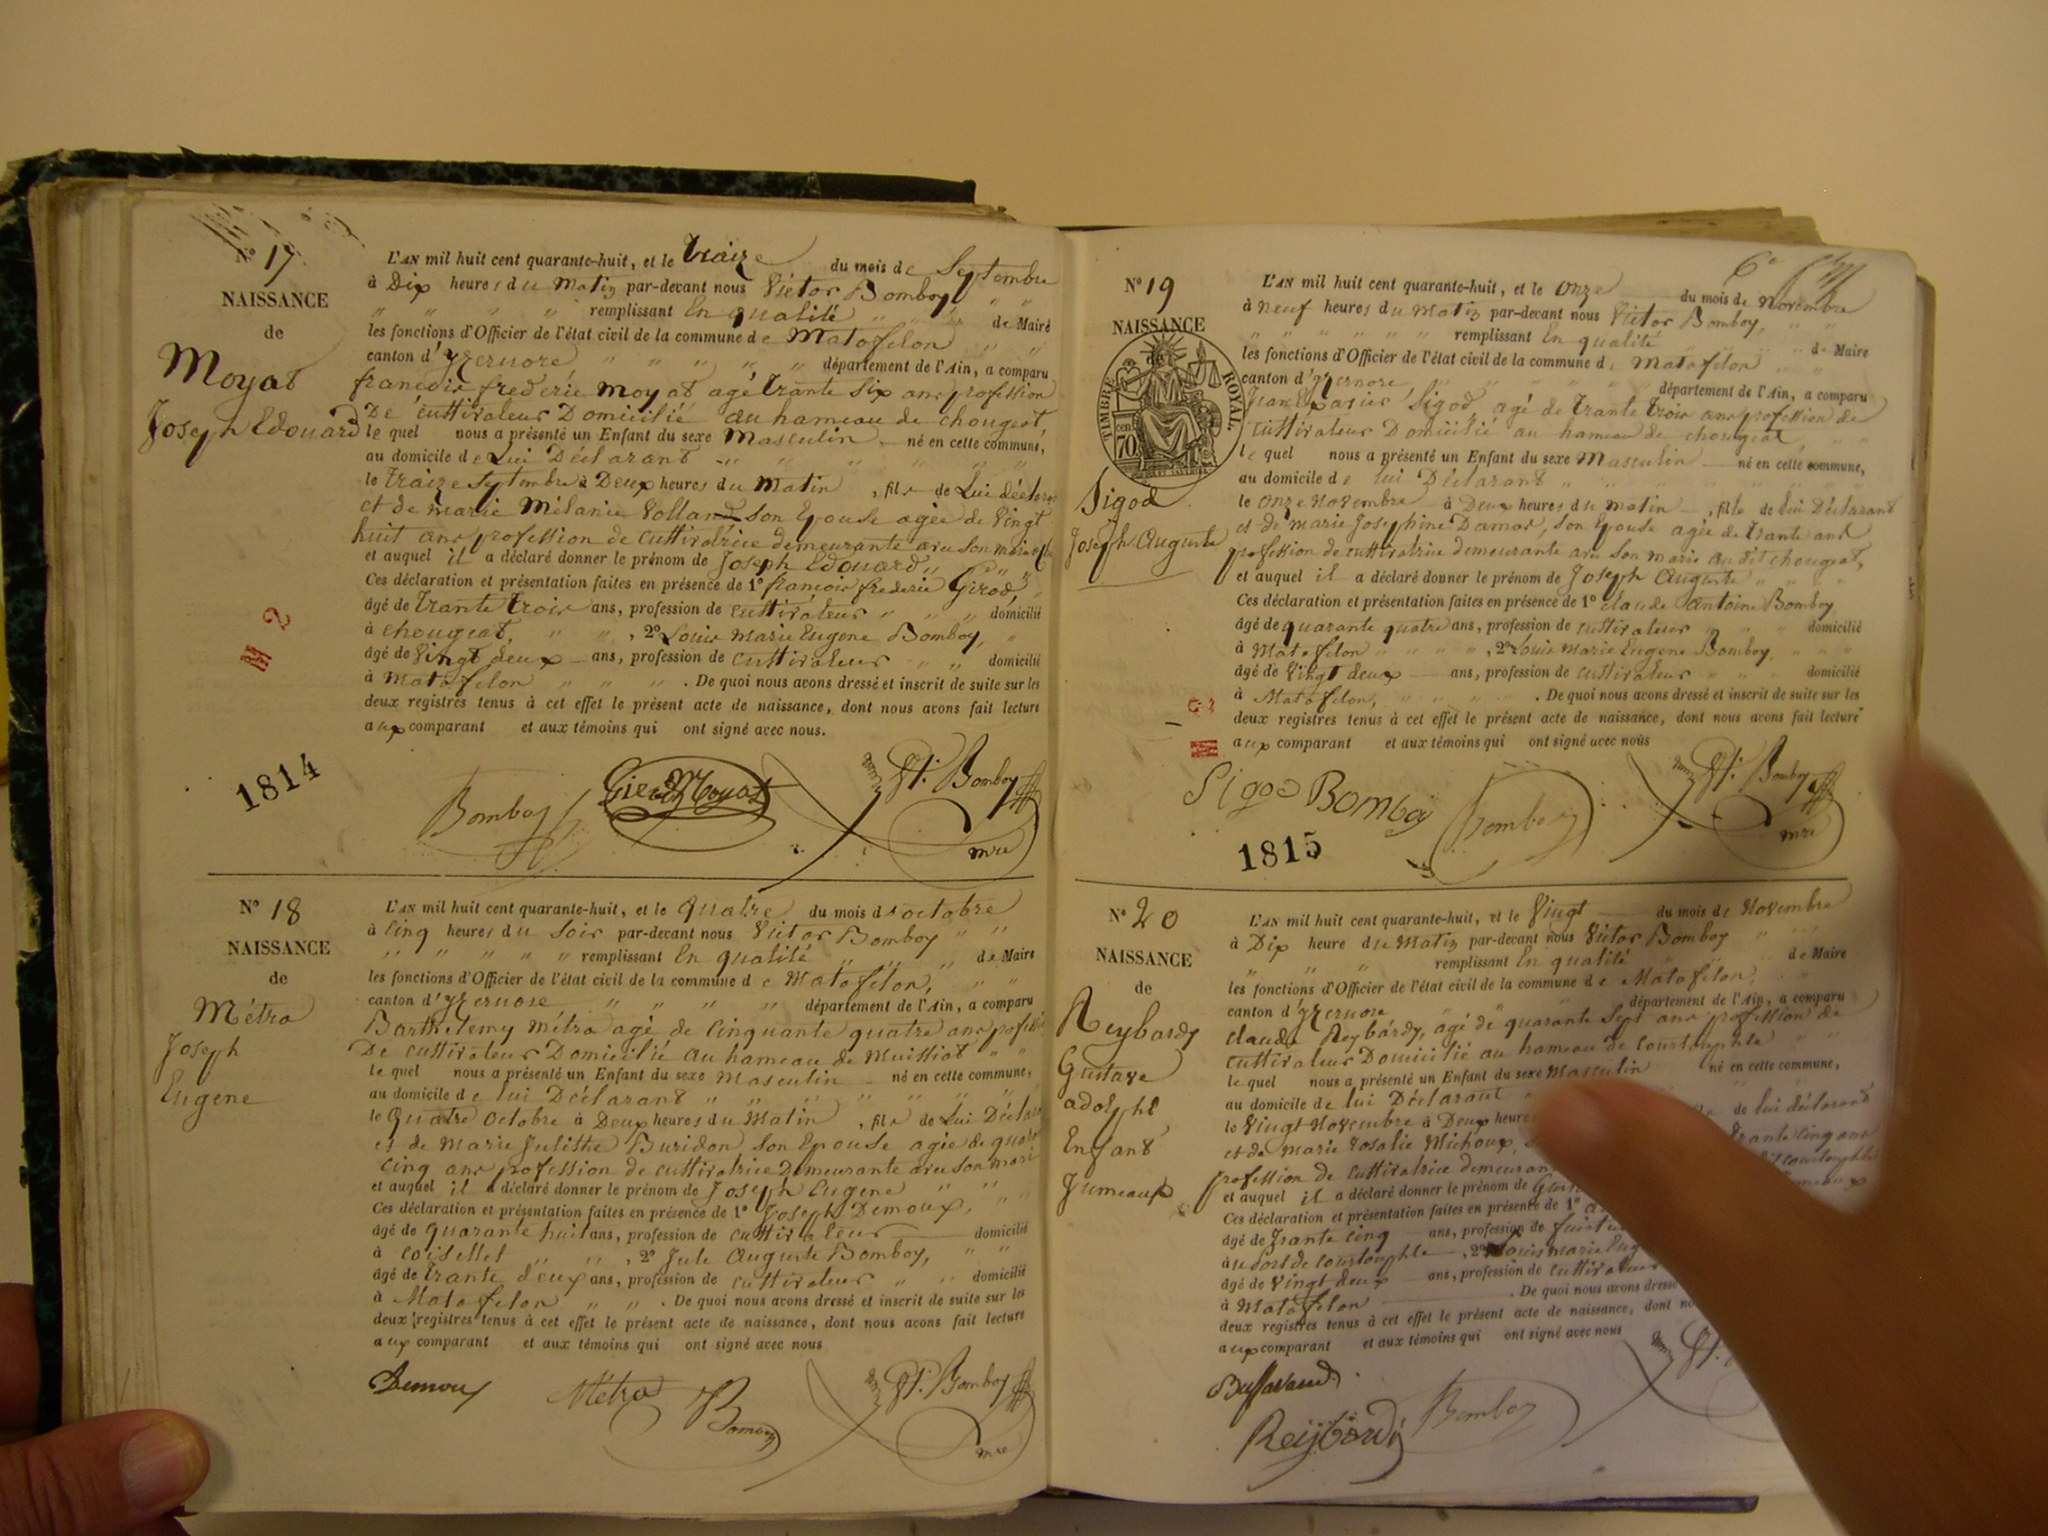 N° 17
NAISSANCE
de
Moyat
Joseph Edouard
L'AN mil huit cent quarante-huit, et le traize du mois de Septembre
à Dix heures du Matin par-devant nous Victor Bomboy
remplissant En qualité de Maire
les fonctions d'Officier de l'état civil de la commune de Matafelon
canton d'yzernore département de l'Ain, a comparu
françois frederic moyat agé trante Six ans profession
De cultivateur Domicilié au hameau de chougeat,
le quel nous a présenté un Enfant du sexe Masculin né en cette commune,
au domicile de Lui Déclarant
le traize Septembre à Deux heures du Matin, fils de Lui déclarant
et de marie Mélanie Volland son Epouse agée de Vingt
huit ans profession de cultivatrice demeurante avec son mari
et auquel il a déclaré donner le prénom de Joseph Edouard
Ces déclaration et présentation faites en présence de 1° françois frederic Girod,
âgé de trante trois ans, profession de cultivateur domicilié
à chougeat, 2° Louis Marie Eugene Bomboy,
âgé de Vingt deux ans, profession de cultivateur domicilié
à Matafelon. De quoi nous avons dressé et inscrit de suite sur les
deux registres tenus à cet effet le présent acte de naissance, dont nous avons fait lecture
aux comparant et aux témoins qui ont signé avec nous.
1814
Bomboy Girod Moyat Vt. Bomboy
mre
N° 18
NAISSANCE
de
Métra
Joseph
Eugene
L'AN mil huit cent quarante-huit, et le quatre du mois d'octobre
à Cinq heures du Soir par-devant nous Victor Bomboy
remplissant En qualité de Maire
les fonctions d'Officier de l'état civil de la commune de Matafelon,
canton d'yzernore département de l'Ain, a comparu
Barthelemy Métra agé de Cinquante quatre ans
De cultivateur Domicilié au hameau de Muissiat
le quel nous a présenté un Enfant du sexe Masculin né en cette commune,
au domicile de lui Déclarant
le quatre octobre à Deux heures du Matin, fils de Lui
et de Marie Julitthe Buridon son Epouse agée de
cinq ans profession de cultivatrice Demeurante avec son mari
et auquel il a déclaré donner le prénom de Joseph Eugene
Ces déclaration et présentation faites en présence de 1° Joseph Demoux,
âgé de quarante huit ans, profession de cultivateur domicilié
à Coisellet, 2° Jule Auguste Bomboy,
âgé de trante deux ans, profession de cultivateur domicilié
à Matafelon. De quoi nous avons dressé et inscrit de suite sur les
deux registres tenus à cet effet le présent acte de naissance, dont nous avons fait lecture
aux comparant et aux témoins qui ont signé avec nous
Demoux Métra Bomboy Vt. Bomboy
mre
N° 19
NAISSANCE
de
TIMBRE ROYAL
70 cen
Sigod
Joseph Auguste
L'AN mil huit cent quarante-huit, et le onze du mois de Novembre
à neuf heures du Matin par-devant nous Victor Bomboy,
remplissant En qualité de Maire
les fonctions d'Officier de l'état civil de la commune de Matafelon
canton d'yzernore département de l'Ain, a comparu
Jean Sigod agé de trante trois ans profession de
cultivateur Domicilié au hameau de chougeat,
le quel nous a présenté un Enfant du sexe Masculin né en cette commune,
au domicile de lui Déclarant
le onze Novembre à Deux heures du Matin, fils de lui Déclarant
et de Marie Josephine Damas, son Epouse agée de trante ans
profession de cultivatrice demeurante avec son mari au dit chougeat,
et auquel il a déclaré donner le prénom de Joseph Auguste
Ces déclaration et présentation faites en présence de 1° claude Antoine Bomboy
âgé de quarante quatre ans, profession de cultivateur domicilié
à Matafelon, 2° Louis Marie Eugene Bomboy,
âgé de Vingt deux ans, profession de cultivateur domicilié
à Matafelon, De quoi nous avons dressé et inscrit de suite sur les
deux registres tenus à cet effet le présent acte de naissance, dont nous avons fait lecture
aux comparant et aux témoins qui ont signé avec nous
Sigod Bomboy Bomboy Vt. Bomboy
mre
1815
N° 20
NAISSANCE
de
Reybardy
Gustave
adolphe
Enfant
Jumeaux
L'AN mil huit cent quarante-huit, et le Vingt du mois de Novembre
à Dix heure du Matin par-devant nous Victor Bomboy
remplissant En qualité de Maire
les fonctions d'Officier de l'état civil de la commune de Matafelon,
canton d'yzernore département de l'Ain, a comparu
claude Reybardy, agé de quarante Sept ans profession de
cultivateur Domicilié au hameau de courtouphle
le quel nous a présenté un Enfant du sexe Masculin né en cette commune,
au domicile de lui Déclarant
le Vingt Novembre à Deux heures de lui déclarant
et de marie rosalie Michoux, trante Cinq ans
profession de cultivatrice
et auquel il a déclaré donner le prénom de
Ces déclaration et présentation faites en présence de 1°
âgé de trante cinq ans, profession de
à Port de courtouphle, 2° Louis Marie
âgé de Vingt deux ans, profession de cultivateur
à Matafelon. De quoi nous avons dressé
deux registres tenus à cet effet le présent acte de naissance, dont
aux comparant et aux témoins qui ont signé avec nous
Reybardy Bomboy